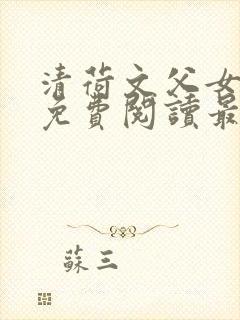 清荷文父女
免費閱讀最
蘇三